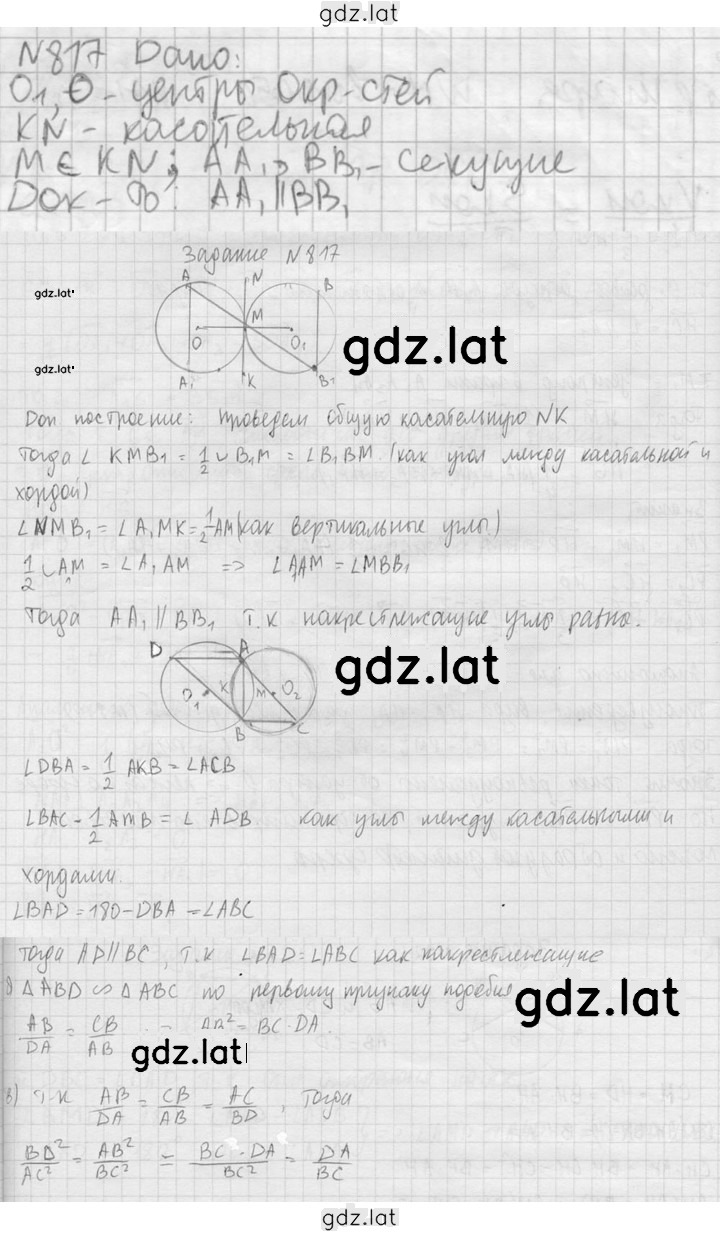 gdz.lat
N817 Дано:
O1, O - центры Окр-стей
KN - касательная
M ∈ KN; AA1, BB1 - секущие
Док-ть: AA1 || BB1
Задание N817
A N B
gdz.lat
M
O O1
gdz.lat
gdz.lat
A1 K B1
Доп построение: проведем общую касательную NK
Тогда ∠ KMB1 = 1/2 ∪ B1M = ∠B1BM. (как угол между касательной и
хордой)
∠NMB1 = ∠A1MK = 1/2 AM (как вертикальные углы)
1/2 ∪AM = ∠A1AM => ∠A1AM = ∠MBB1
Тогда AA1 || BB1 т.к накрестлежащие углы равны.
D A
gdz.lat
O1 K M O2
B C
∠DBA = 1/2 AKB = ∠ACB
∠BAC - 1/2 AmB = ∠ ADB как углы между касательными и
хордами.
∠BAD = 180 - DBA = ∠ABC
Тогда AD || BC, т.к ∠BAD = ∠ABC как накрестлежащие
△ABD ∽ △ABC по первому признаку подобия
gdz.lat
AB/DA = CB/AB = BC · DA.
gdz.lat
в) т.к AB/DA = CB/AB = AC/BD, Тогда
BD²/AC² = AB²/BC² = BC · DA/BC² = DA/BC
gdz.lat